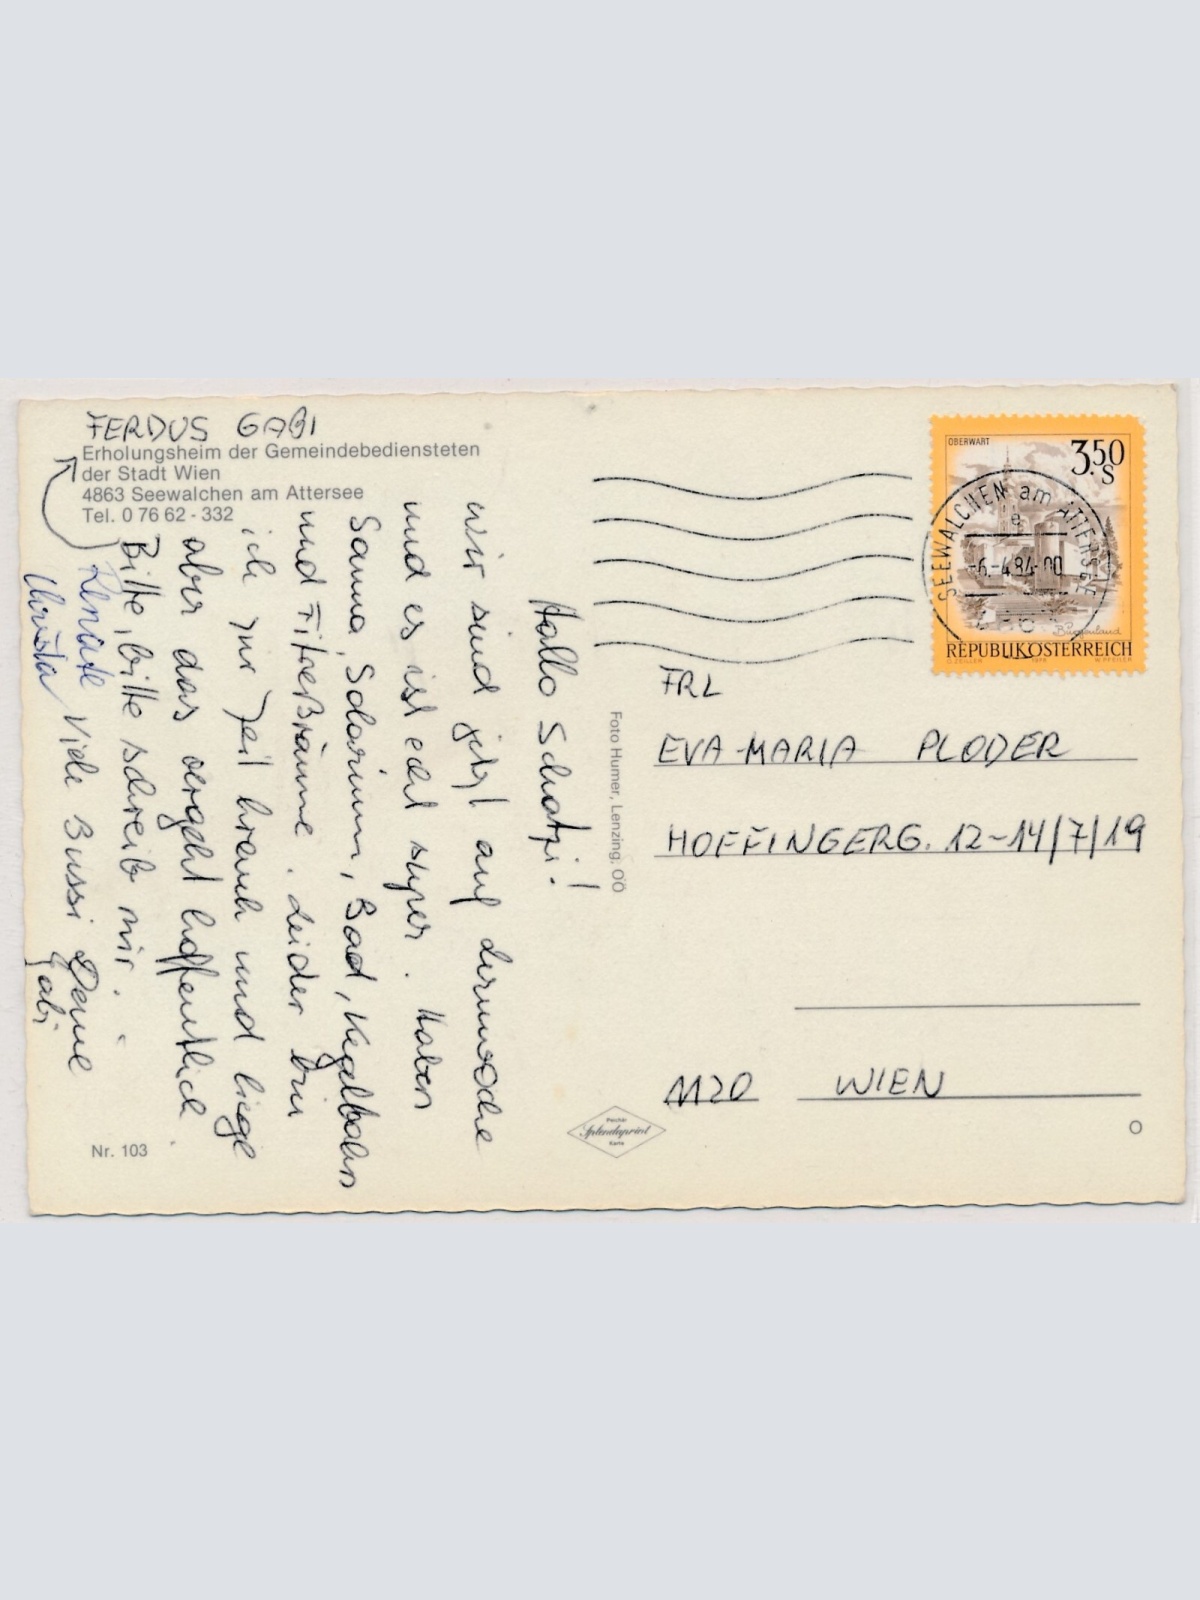 FERDUS GABI
Erholungsheim der Gemeindebediensteten
der Stadt Wien
4863 Seewalchen am Attersee
Tel. 0 76 62 - 332
Hallo Schatzi!
wir sind jetzt auf Lernwoche
und es ist echt super. Haben
Sauna, Solarium, Bad, Kegelbahn
und Fitneßräume. Leider bin
ich zur Zeit krank und liege
aber das vergeht hoffentlich
Bitte, bitte schreib mir.
Viele Bussi Deine
Gabi
Renate
Christa
Nr. 103
Foto Humer, Lenzing, OÖ
Plochar
Splendaprint
Karte
OBERWART
3.50
S
Burgenland
REPUBLIK ÖSTERREICH
O. ZEILLER 1978 W. PFEILER
SEEWALCHEN am ATTERSEE
-6.-4.84-00
FRL
EVA-MARIA PLODER
HOFFINGERG. 12-14/7/19
1120 WIEN